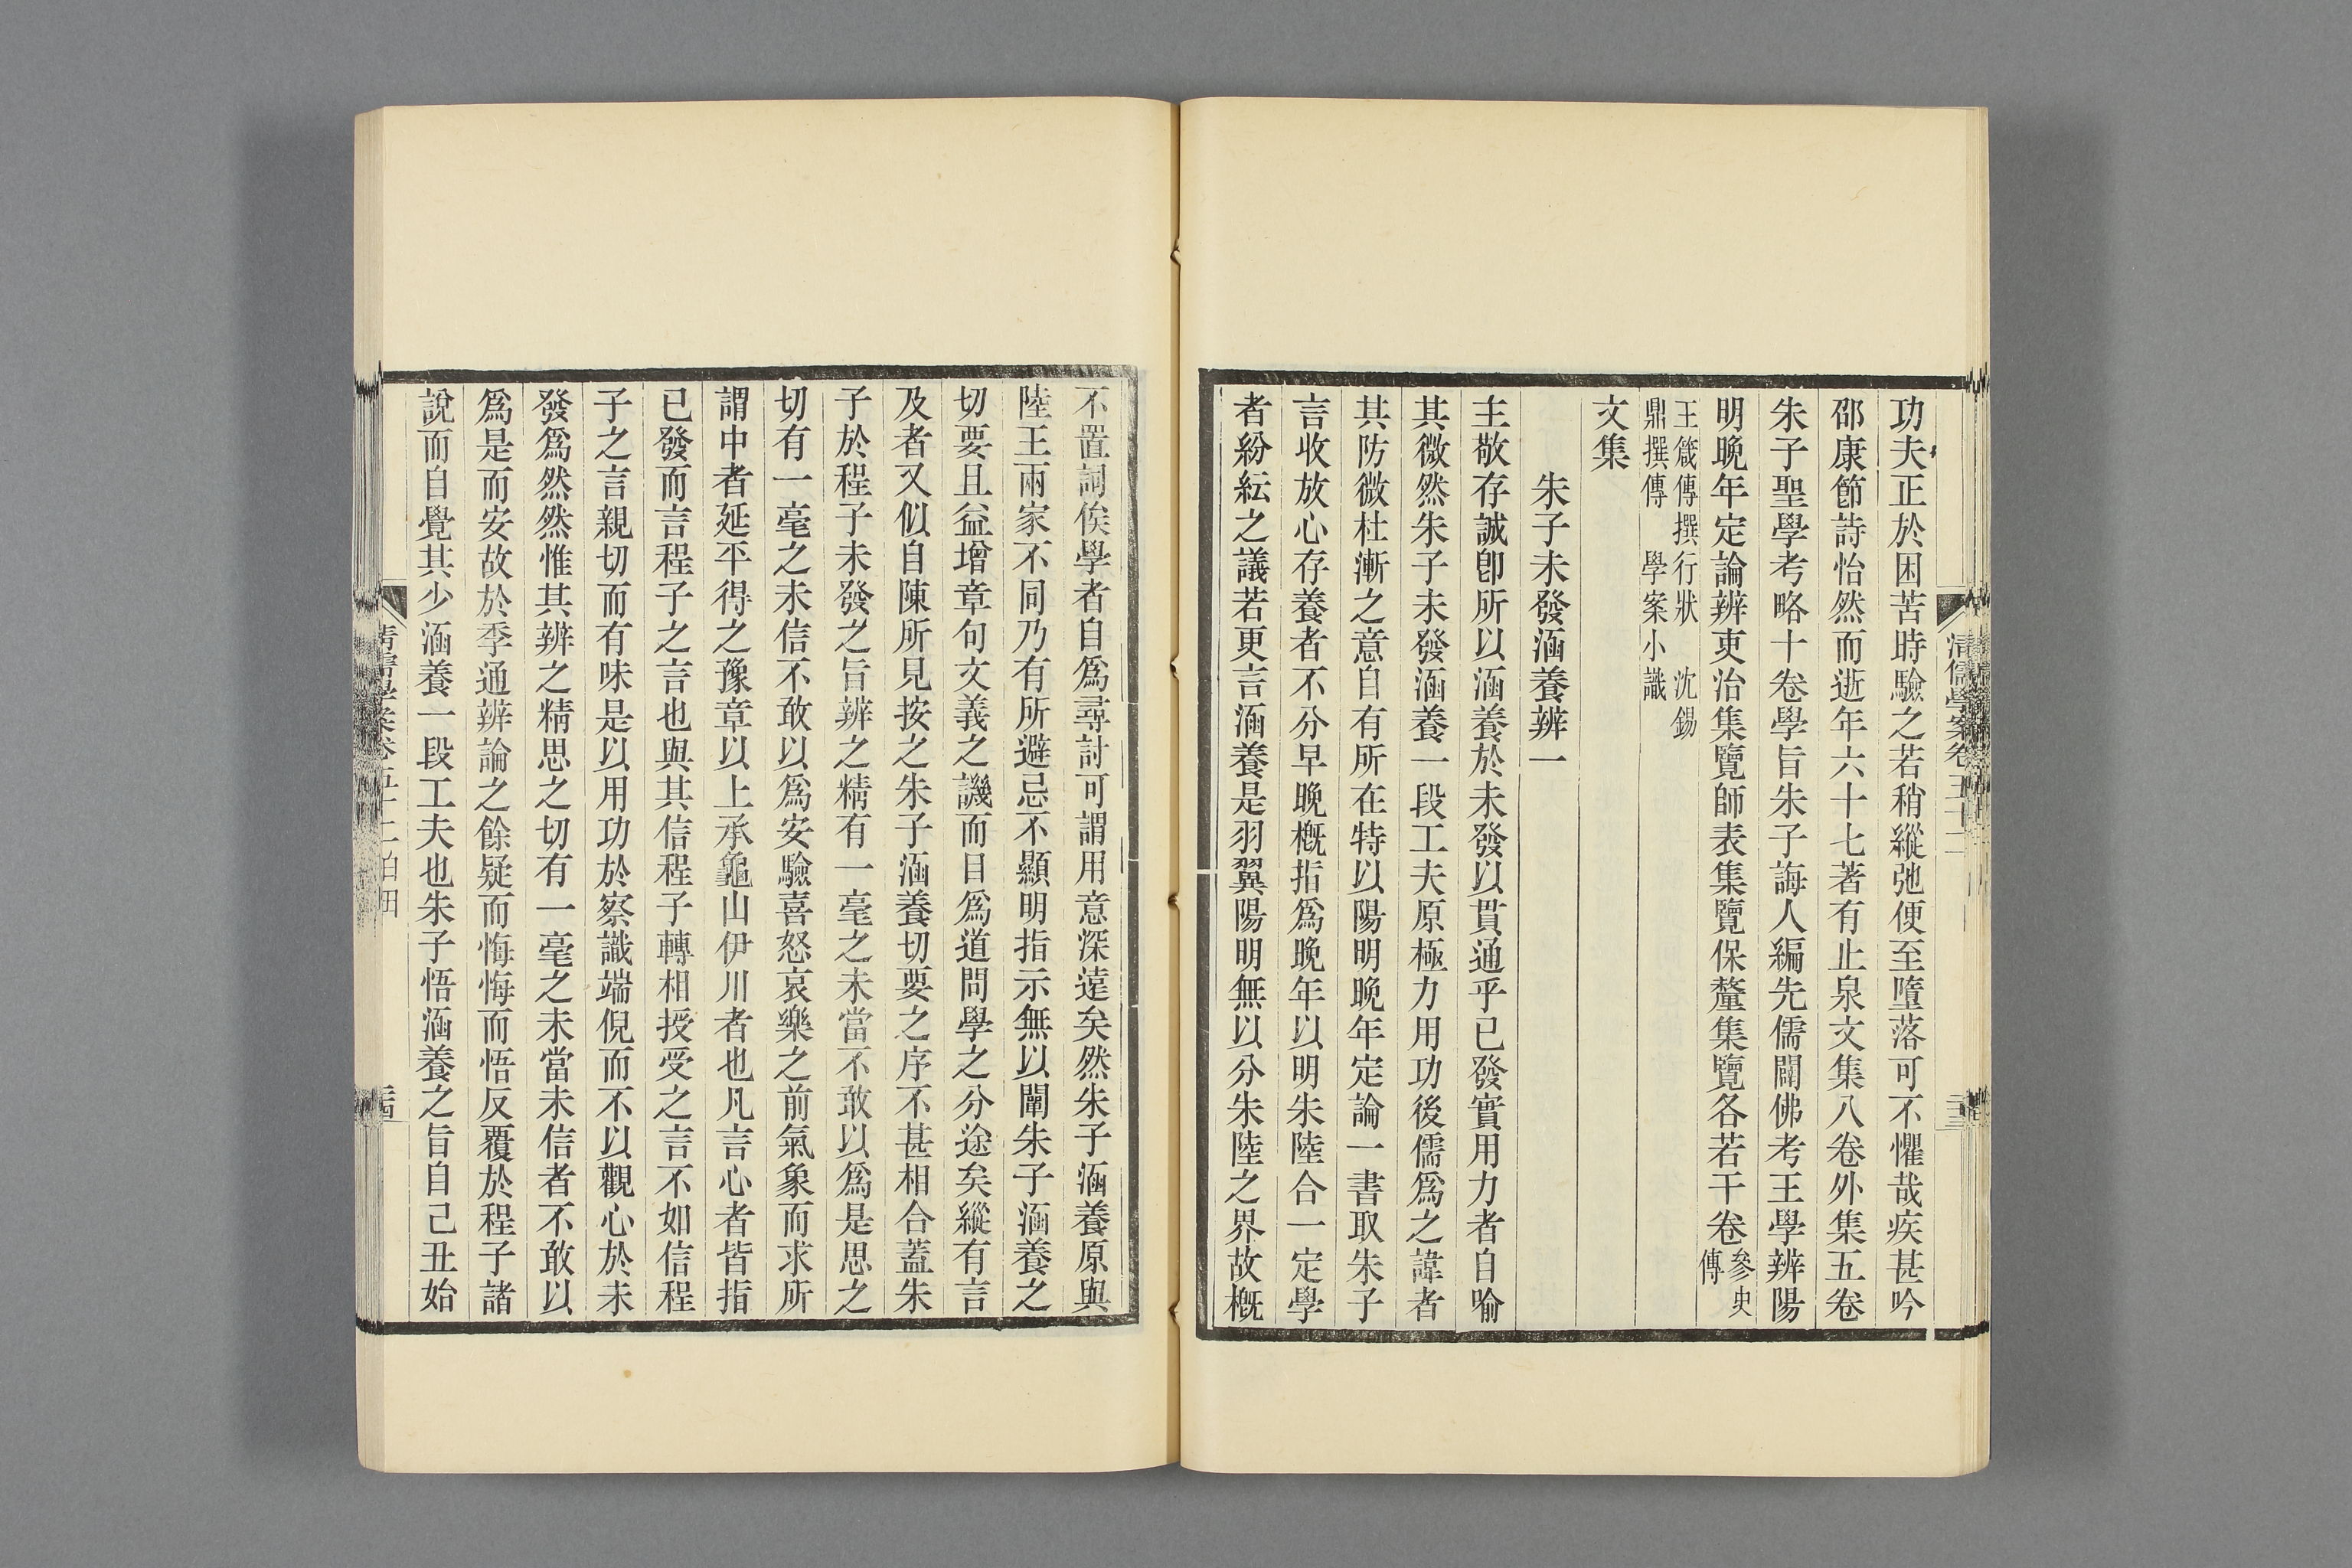 功夫正於困苦時驗之若稍縱弛便至墮落可不懼哉疾甚吟
邵康節詩怡然而逝年六十七著有止泉文集八卷外集五卷
朱子聖學考略十卷學旨朱子誨人編先儒闢佛考王學辨陽
明晚年定論辨吏治集覽師表集覽保釐集覽各若干卷參史
傳
王箴傳撰行狀 沈錫
鼎撰傳 學案小識
文集
朱子未發涵養辨一
主敬存誠卽所以涵養於未發以貫通乎已發實用力者自喻
其微然朱子未發涵養一段工夫原極力用功後儒爲之諱者
其防微杜漸之意自有所在特以陽明晚年定論一書取朱子
言收放心存養者不分早晚槪指爲晚年以明朱陸合一定學
者紛紜之議若更言涵養是羽翼陽明無以分朱陸之界故槪
不置詞俟學者自爲尋討可謂用意深遠矣然朱子涵養原與
陸王兩家不同乃有所避忌不顯明指示無以闡朱子涵養之
切要且益增章句文義之譏而目爲道問學之分途矣縱有言
及者又似自陳所見按之朱子涵養切要之序不甚相合蓋朱
子於程子未發之旨辨之精有一毫之未當不敢以爲是思之
切有一毫之未信不敢以爲安驗喜怒哀樂之前氣象而求所
謂中者延平得之豫章以上承龜山伊川者也凡言心者皆指
已發而言程子之言也與其信程子轉相授受之言不如信程
子之言親切而有味是以用功於察識端倪而不以觀心於未
發爲然然惟其辨之精思之切有一毫之未當未信者不敢以
爲是而安故於季通辨論之餘疑而悔悔而悟反覆於程子諸
說而自覺其少涵養一段工夫也朱子悟涵養之旨自己丑始